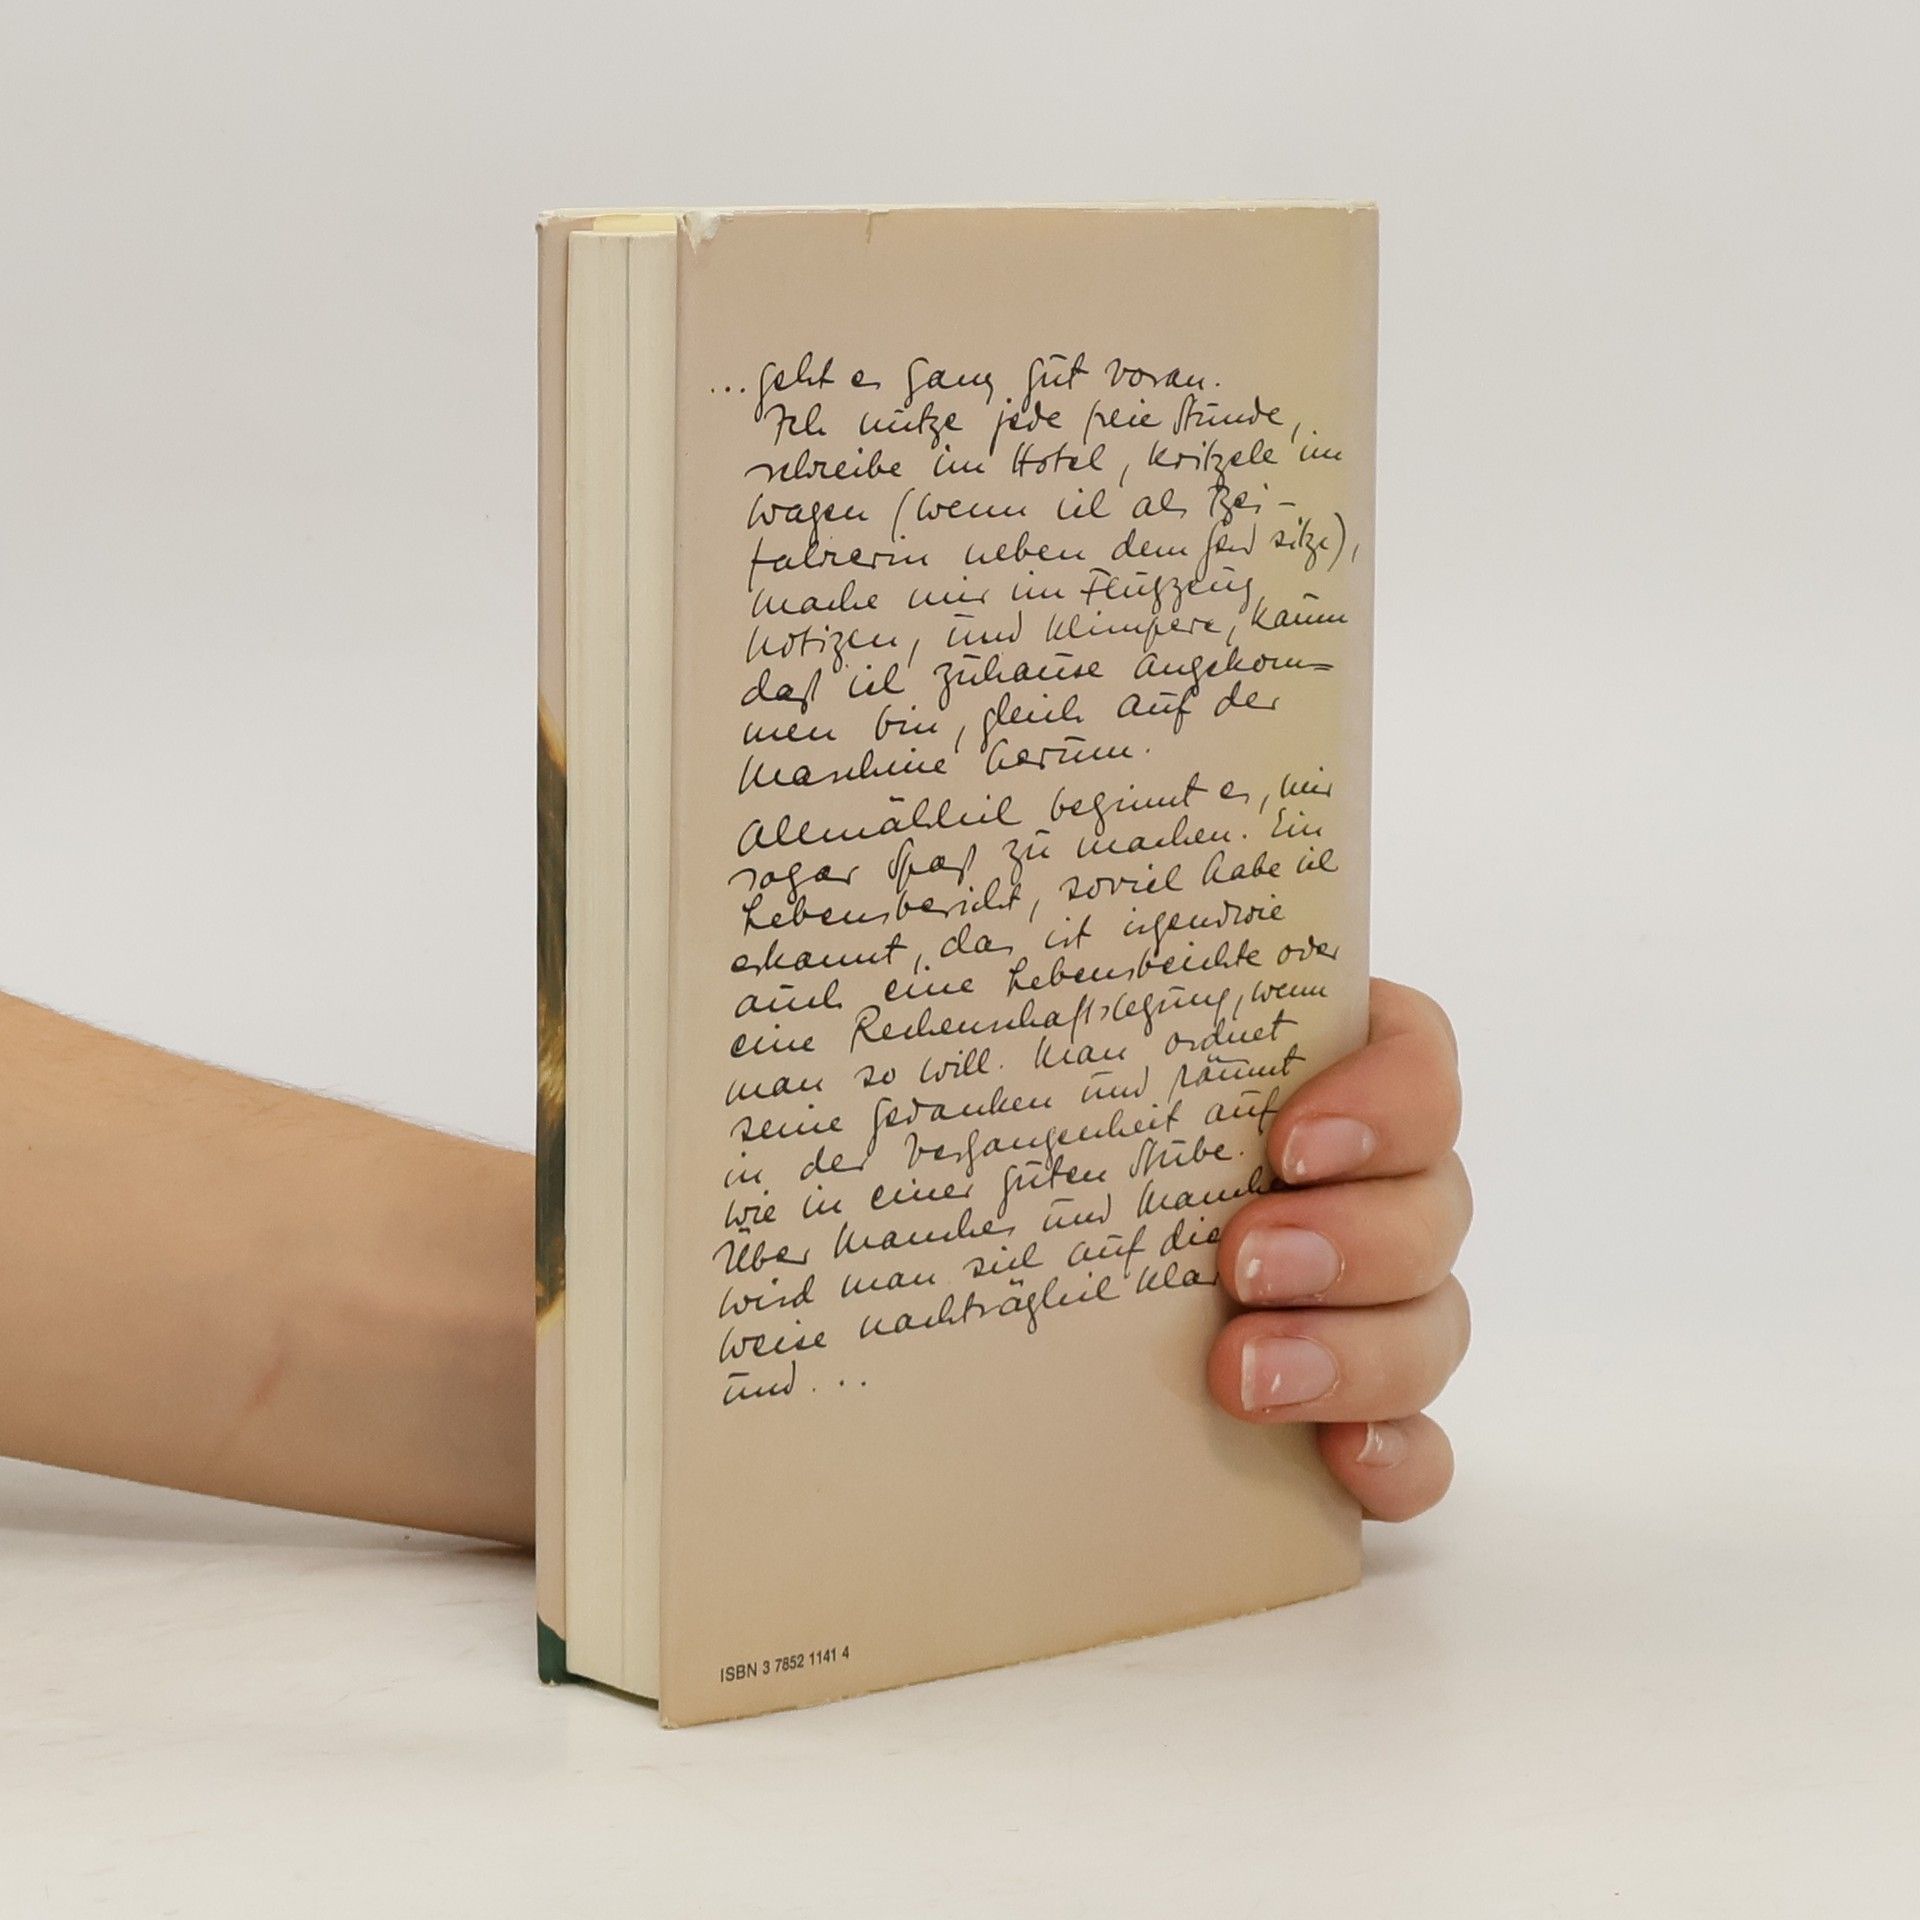 ...geht es ganz gut voran.
Ich nütze jede freie Stunde,
schreibe im Hotel, kritzele im
Wagen (wenn ich als Bei-
fahrerin neben dem Gerd sitze),
mache mir im Flugzeug
Notizen, und klimpere, kaum
daß ich zuhause angekom=
men bin, gleich auf der
Maschine herum.
Allmählich beginnt es, mir
sogar Spaß zu machen. Ein
Lebensbericht, soviel habe ich
erkannt, das ist irgendwie
auch eine Lebensbeichte oder
eine Rechenschaftslegung, wenn
man so will. Man ordnet
seine Gedanken und räumt
in der Vergangenheit auf
wie in einer guten Stube.
Über Manches und
wird man sich auf
Weise nachträglich klar
und...
ISBN 3 7852 1141 4